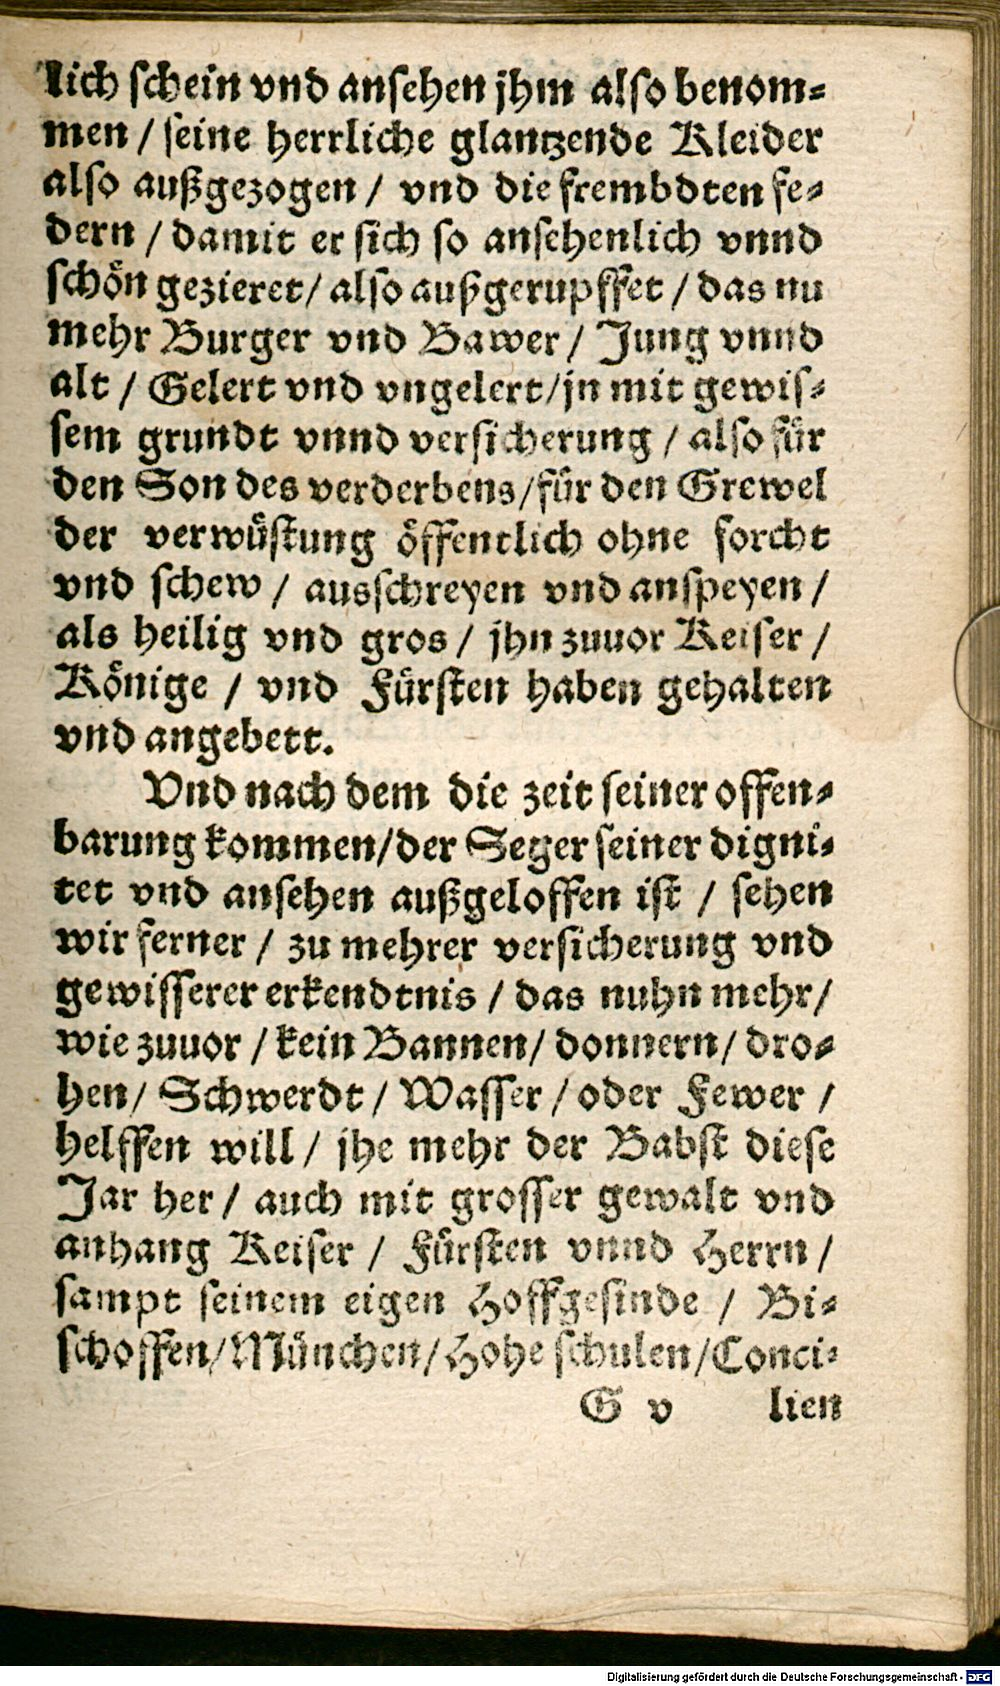 lich schein vnd ansehen jhm also benom=
men / seine herrliche glantzende Kleider
also außgezogen / vnd die frembdten fe=
dern / damit er sich so ansehenlich vnnd
schön gezieret / also außgerupffet / das nu
mehr Burger vnd Bawer / Jung vnnd
alt / Gelert vnd vngelert / jn mit gewis=
sem grundt vnnd versicherung / also für
den Son des verderbens / für den Grewel
der verwüstung öffentlich ohne forcht
vnd schew / ausschreyen vnd anspeyen /
als heilig vnd gros / jhn zuuor Keiser /
Könige / vnd Fürsten haben gehalten
vnd angebett.
Vnd nach dem die zeit seiner offen=
barung kommen / der Seger seiner digni=
tet vnd ansehen außgeloffen ist / sehen
wir ferner / zu mehrer versicherung vnd
gewisserer erkendtnis / das nuhn mehr /
wie zuuor / kein Bannen / donnern / dro=
hen / Schwerdt / Wasser / oder Fewer /
helffen will / jhe mehr der Babst diese
Jar her / auch mit grosser gewalt vnd
anhang Keiser / Fürsten vnnd Herrn /
sampt seinem eigen Hoffgesinde / Bi=
schoffen / München / Hohe schulen / Conci=
G v lien
Digitalisierung gefördert durch die Deutsche Forschungsgemeinschaft - DFG